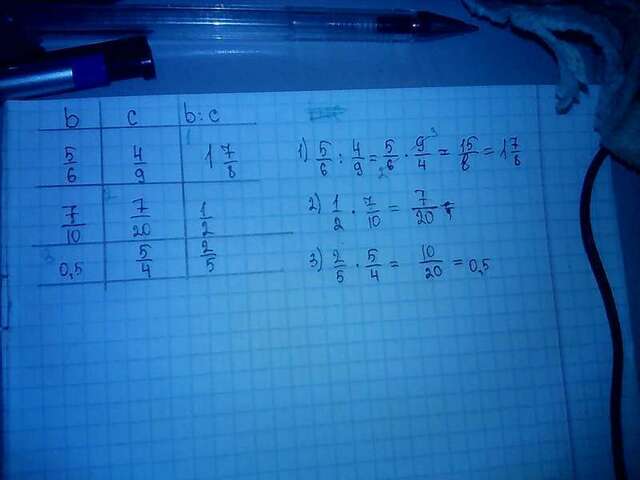 b c b:c
5/6 4/9 1 7/8
7/10 7/20 1/2
0,5 5/4 2/5
1) 5/6 : 4/9 = 5/6 · 9/4 = 15/8 = 1 7/8
2) 1/2 · 7/10 = 7/20
3) 2/5 · 5/4 = 10/20 = 0,5